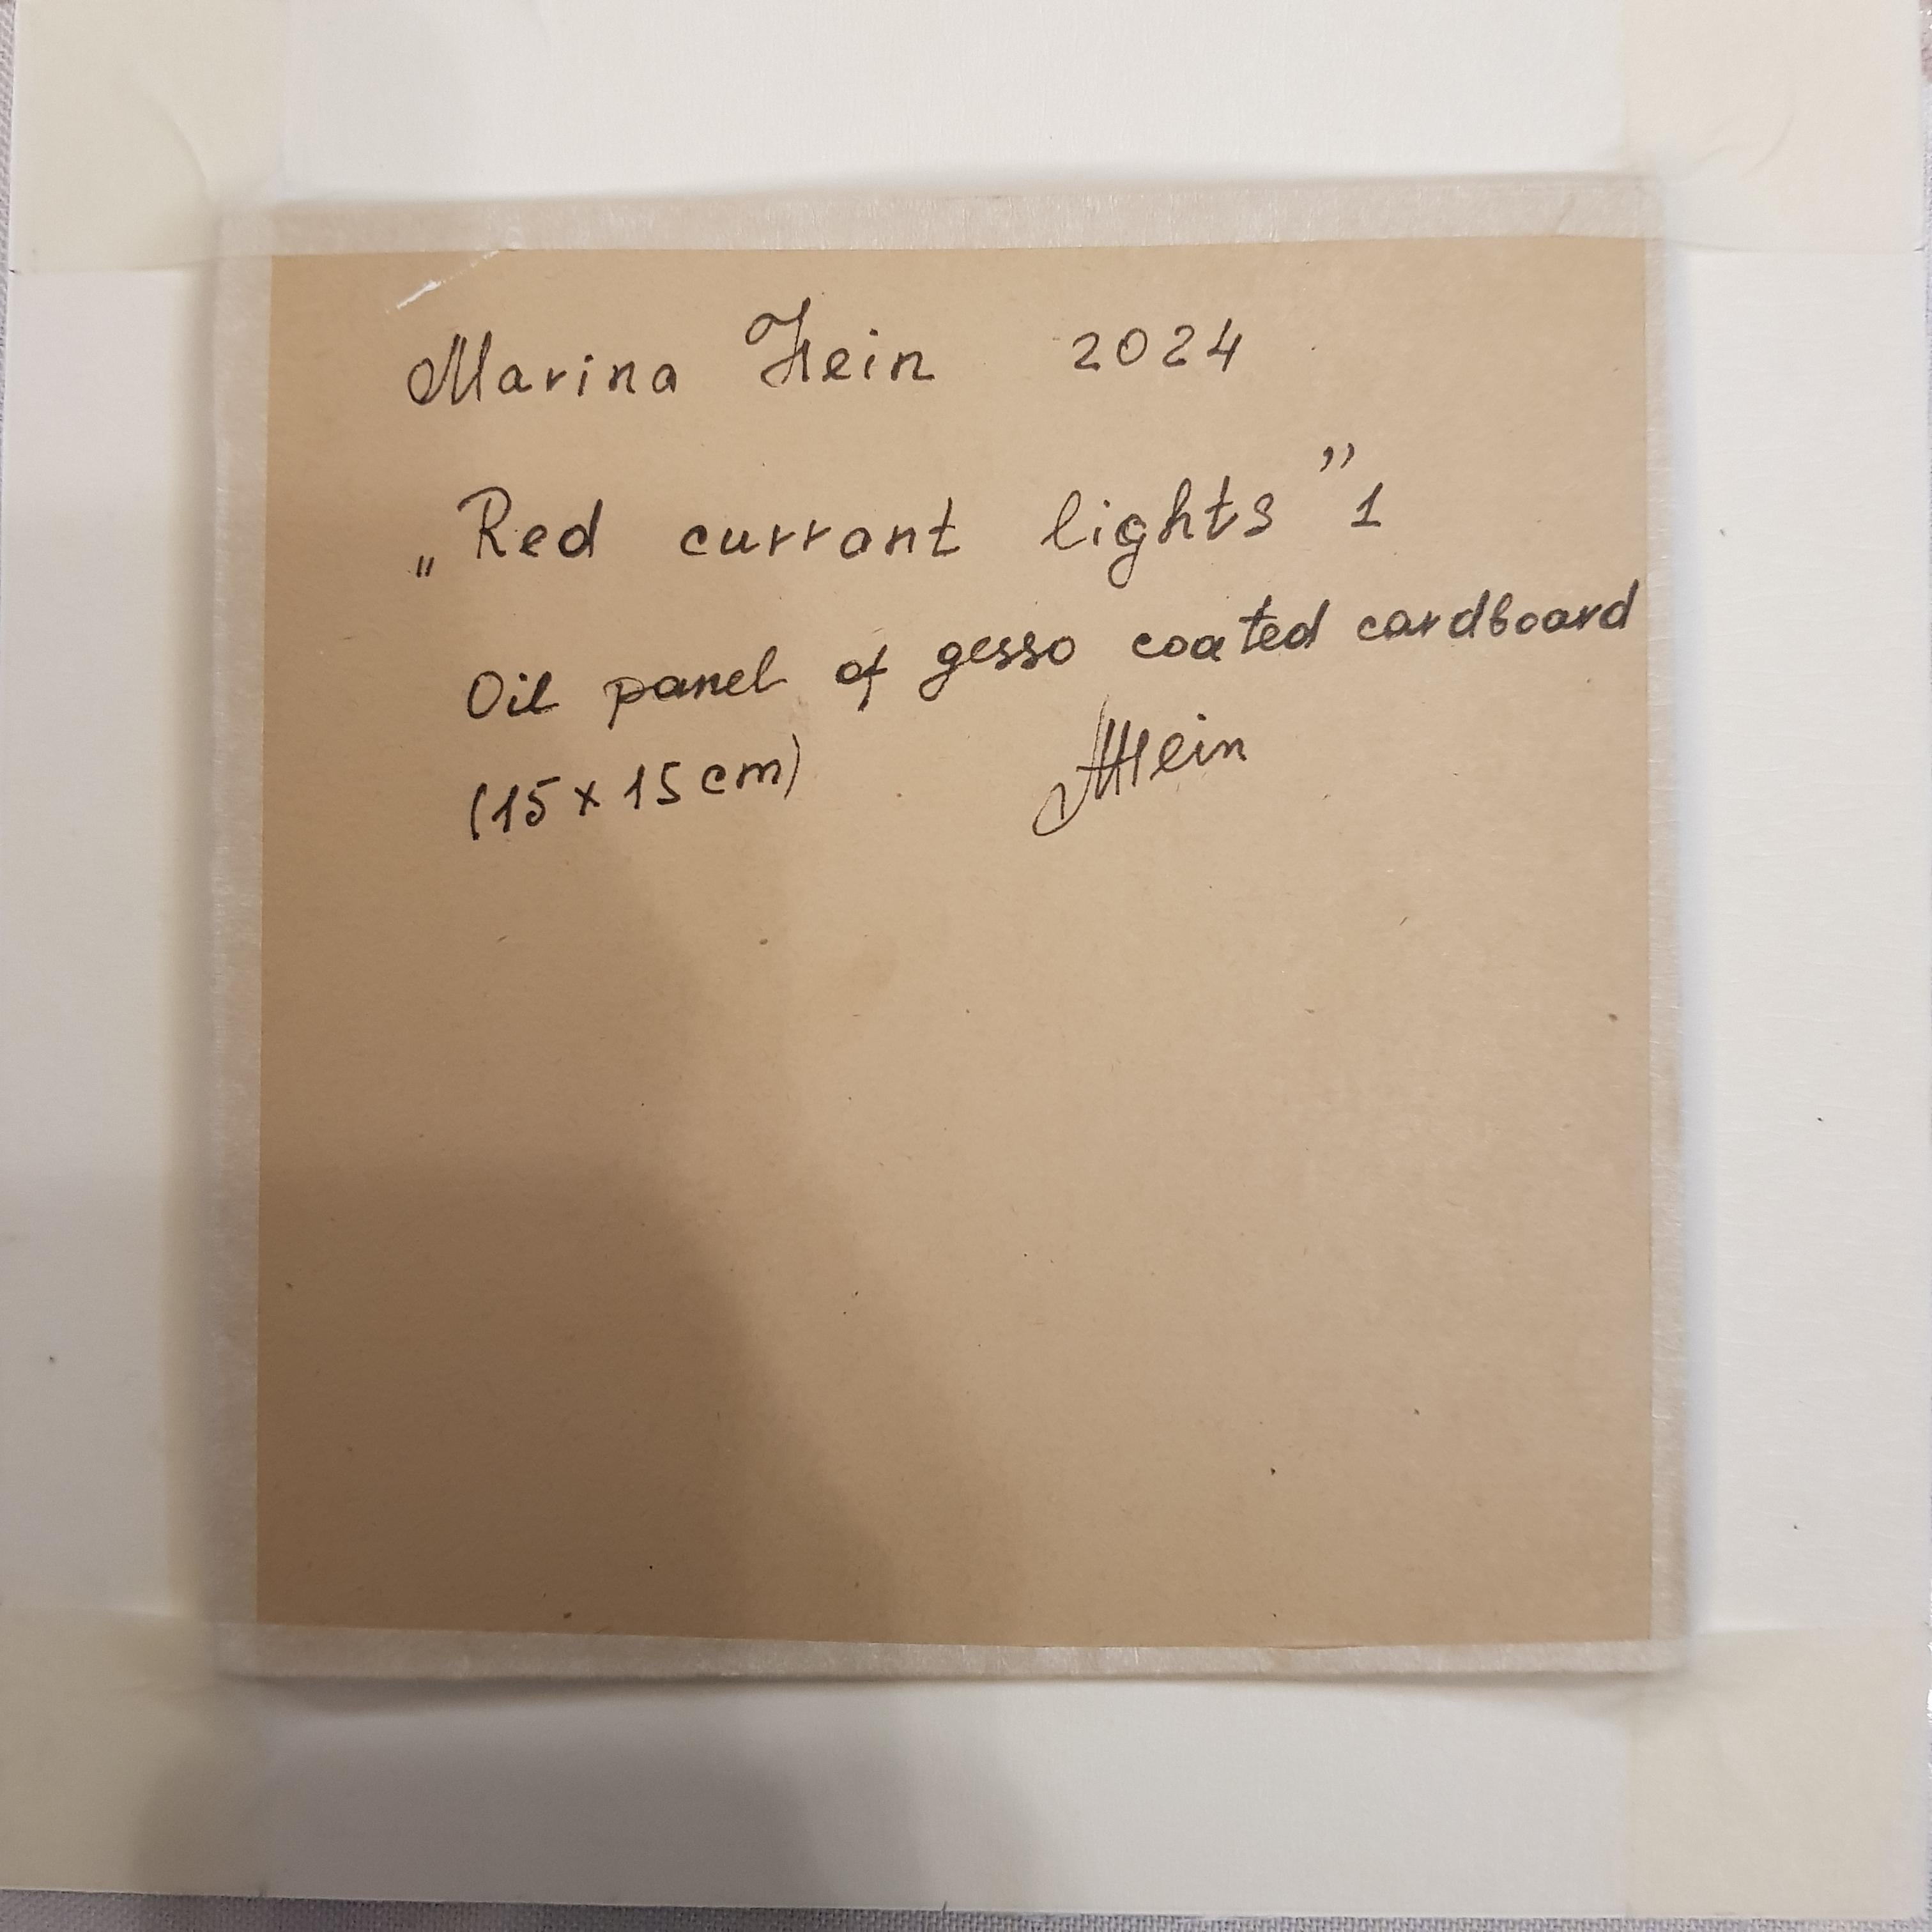 Marina Hein 2024
„Red currant lights” 1
Oil panel of gesso coated cardboard
(15 x 15 cm) MHein